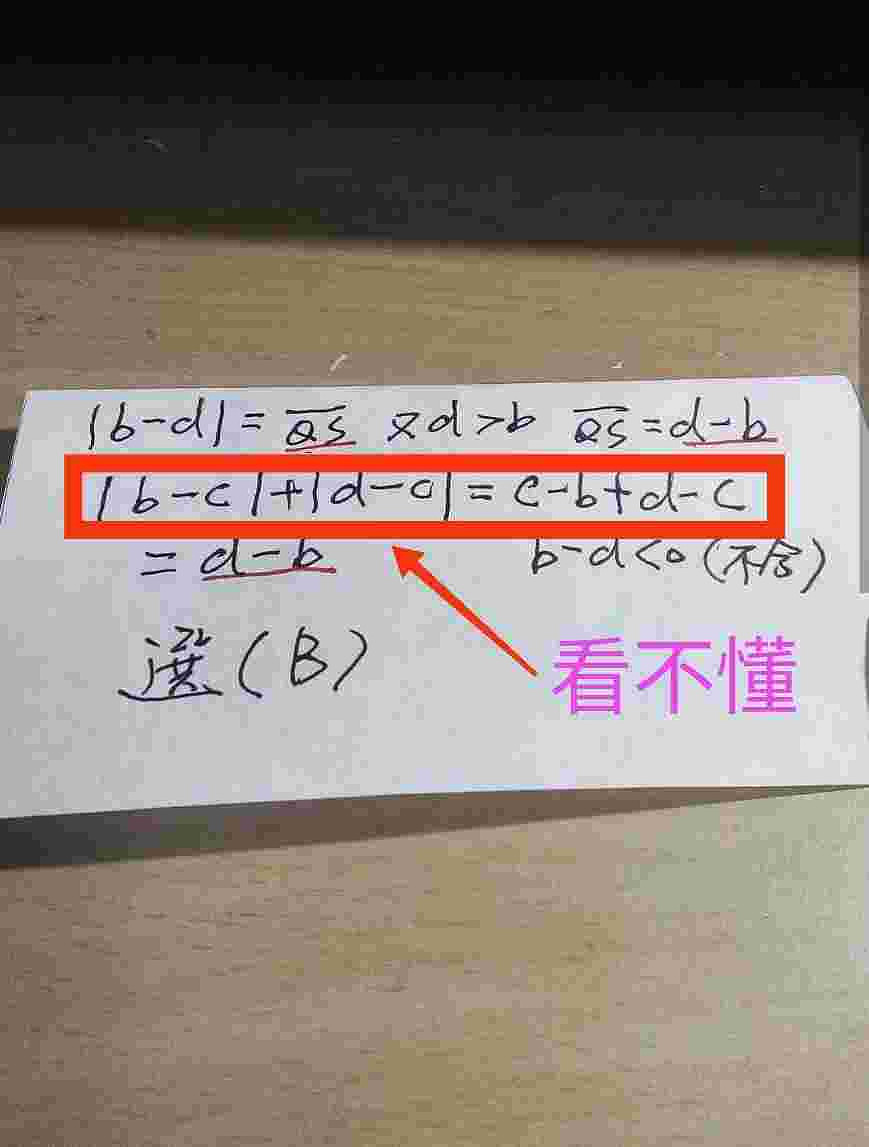 |b-d|=QS 又d>b QS=d-b
|b-c|+|d-c|=c-b+d-c
=d-b b-d<0(不合)
選(B)
看不懂